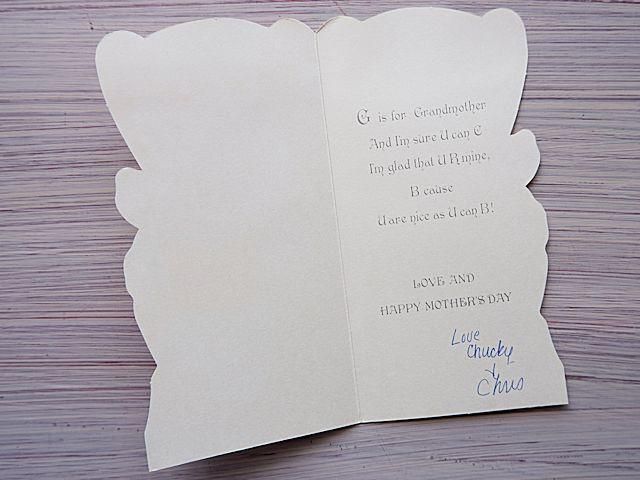 G is for Grandmother
And I'm sure U can C
I'm glad that U R mine,
B cause
U are nice as U can B!
LOVE AND
HAPPY MOTHER'S DAY
Love
Chucky
+
Chris